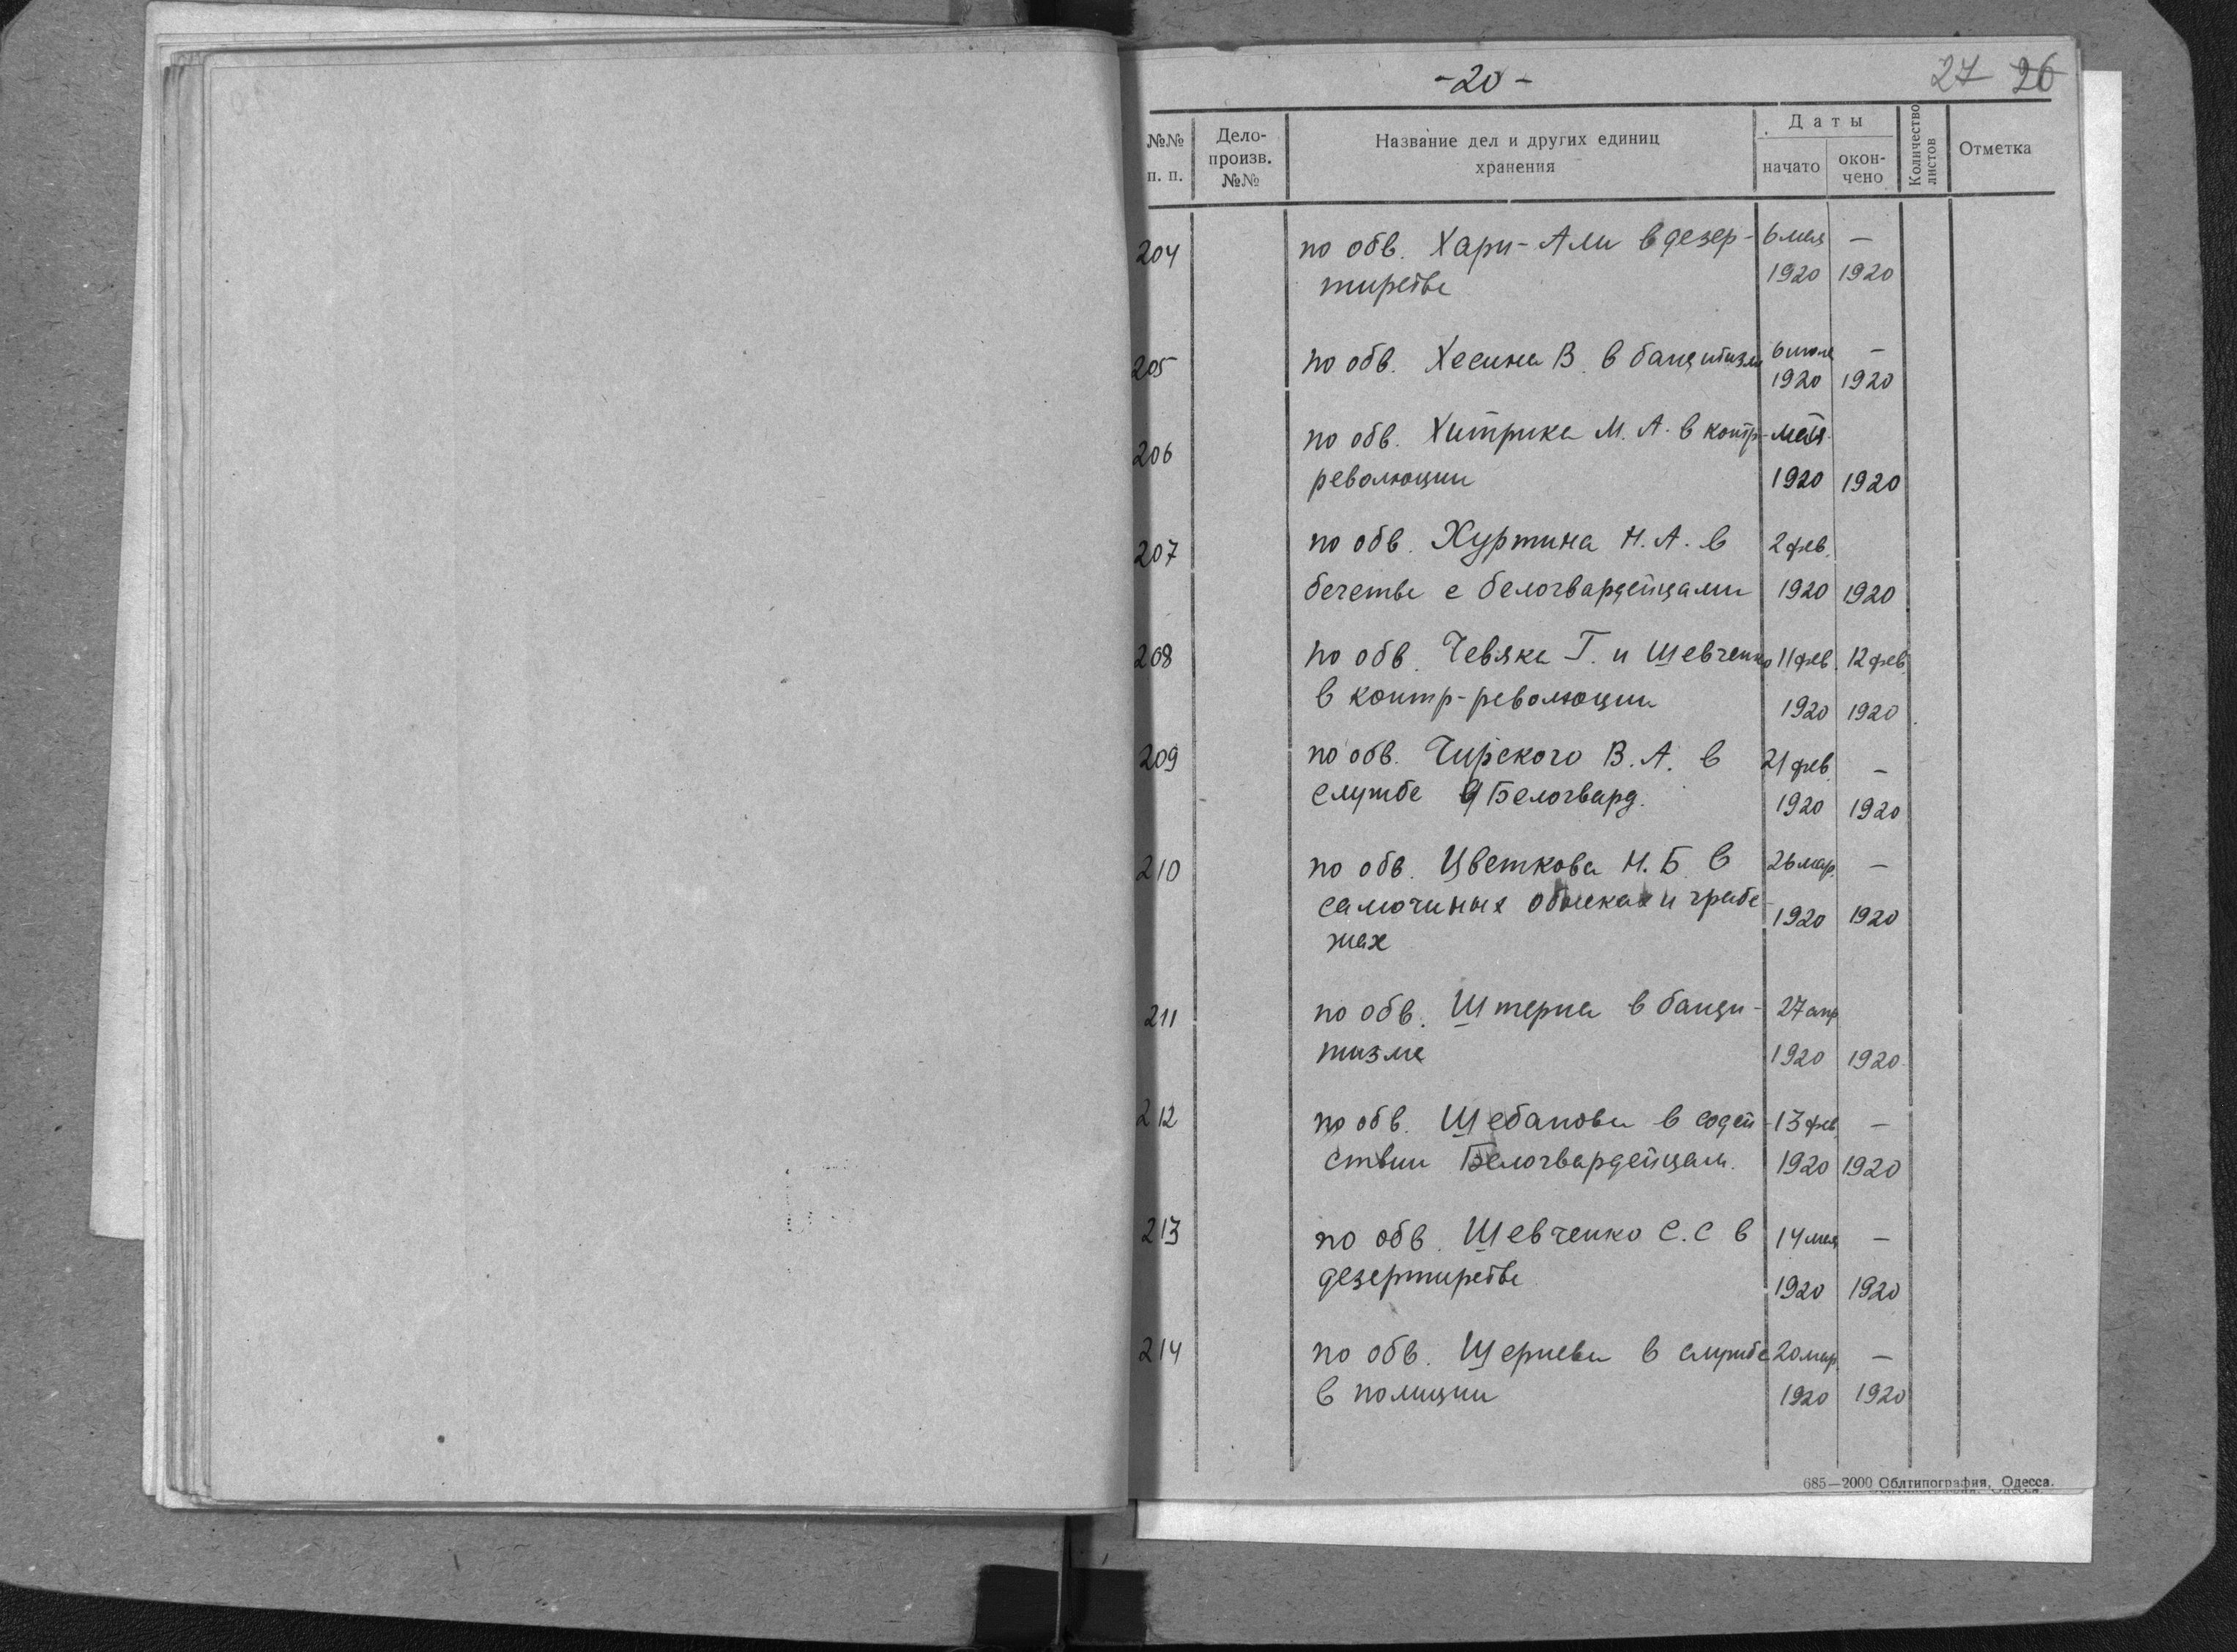 -20-
27 26
№№ п. п.
Дело-произв. №№
Название дел и других единиц хранения
Даты
начато
окон-чено
Количество листов
Отметка
204 по обв. Хари-Али в дезер- 6 мая —
тирстве 1920 1920
205 по обв. Хесина В. в бандитизме 6 июля —
1920 1920
206 по обв. Хитрика М. А. в контр- мая
революции 1920 1920
207 по обв. Хуртина Н. А. в 2 фев.
бегстве с белогвардейцами 1920 1920
208 по обв. Чевяка Г. и Шевченко 11 фев. 12 фев.
в контр-революции 1920 1920
209 по обв. Чирского В. А. в 21 фев. —
службе у Белогвард. 1920 1920
210 по обв. Цветкова Н. Б. в 26 мар. —
самочиных обысках и грабе- 1920 1920
жах
211 по обв. Штерна в банди- 27 апр
тизме 1920 1920
212 по обв. Щебанова в содей- 13 фев. —
ствии Белогвардейцам. 1920 1920
213 по обв. Шевченко С. С в 14 мая —
дезертирстве 1920 1920
214 по обв. Щернева в службе 20 мар. —
в полиции 1920 1920
685—2000 Облтипография, Одесса.